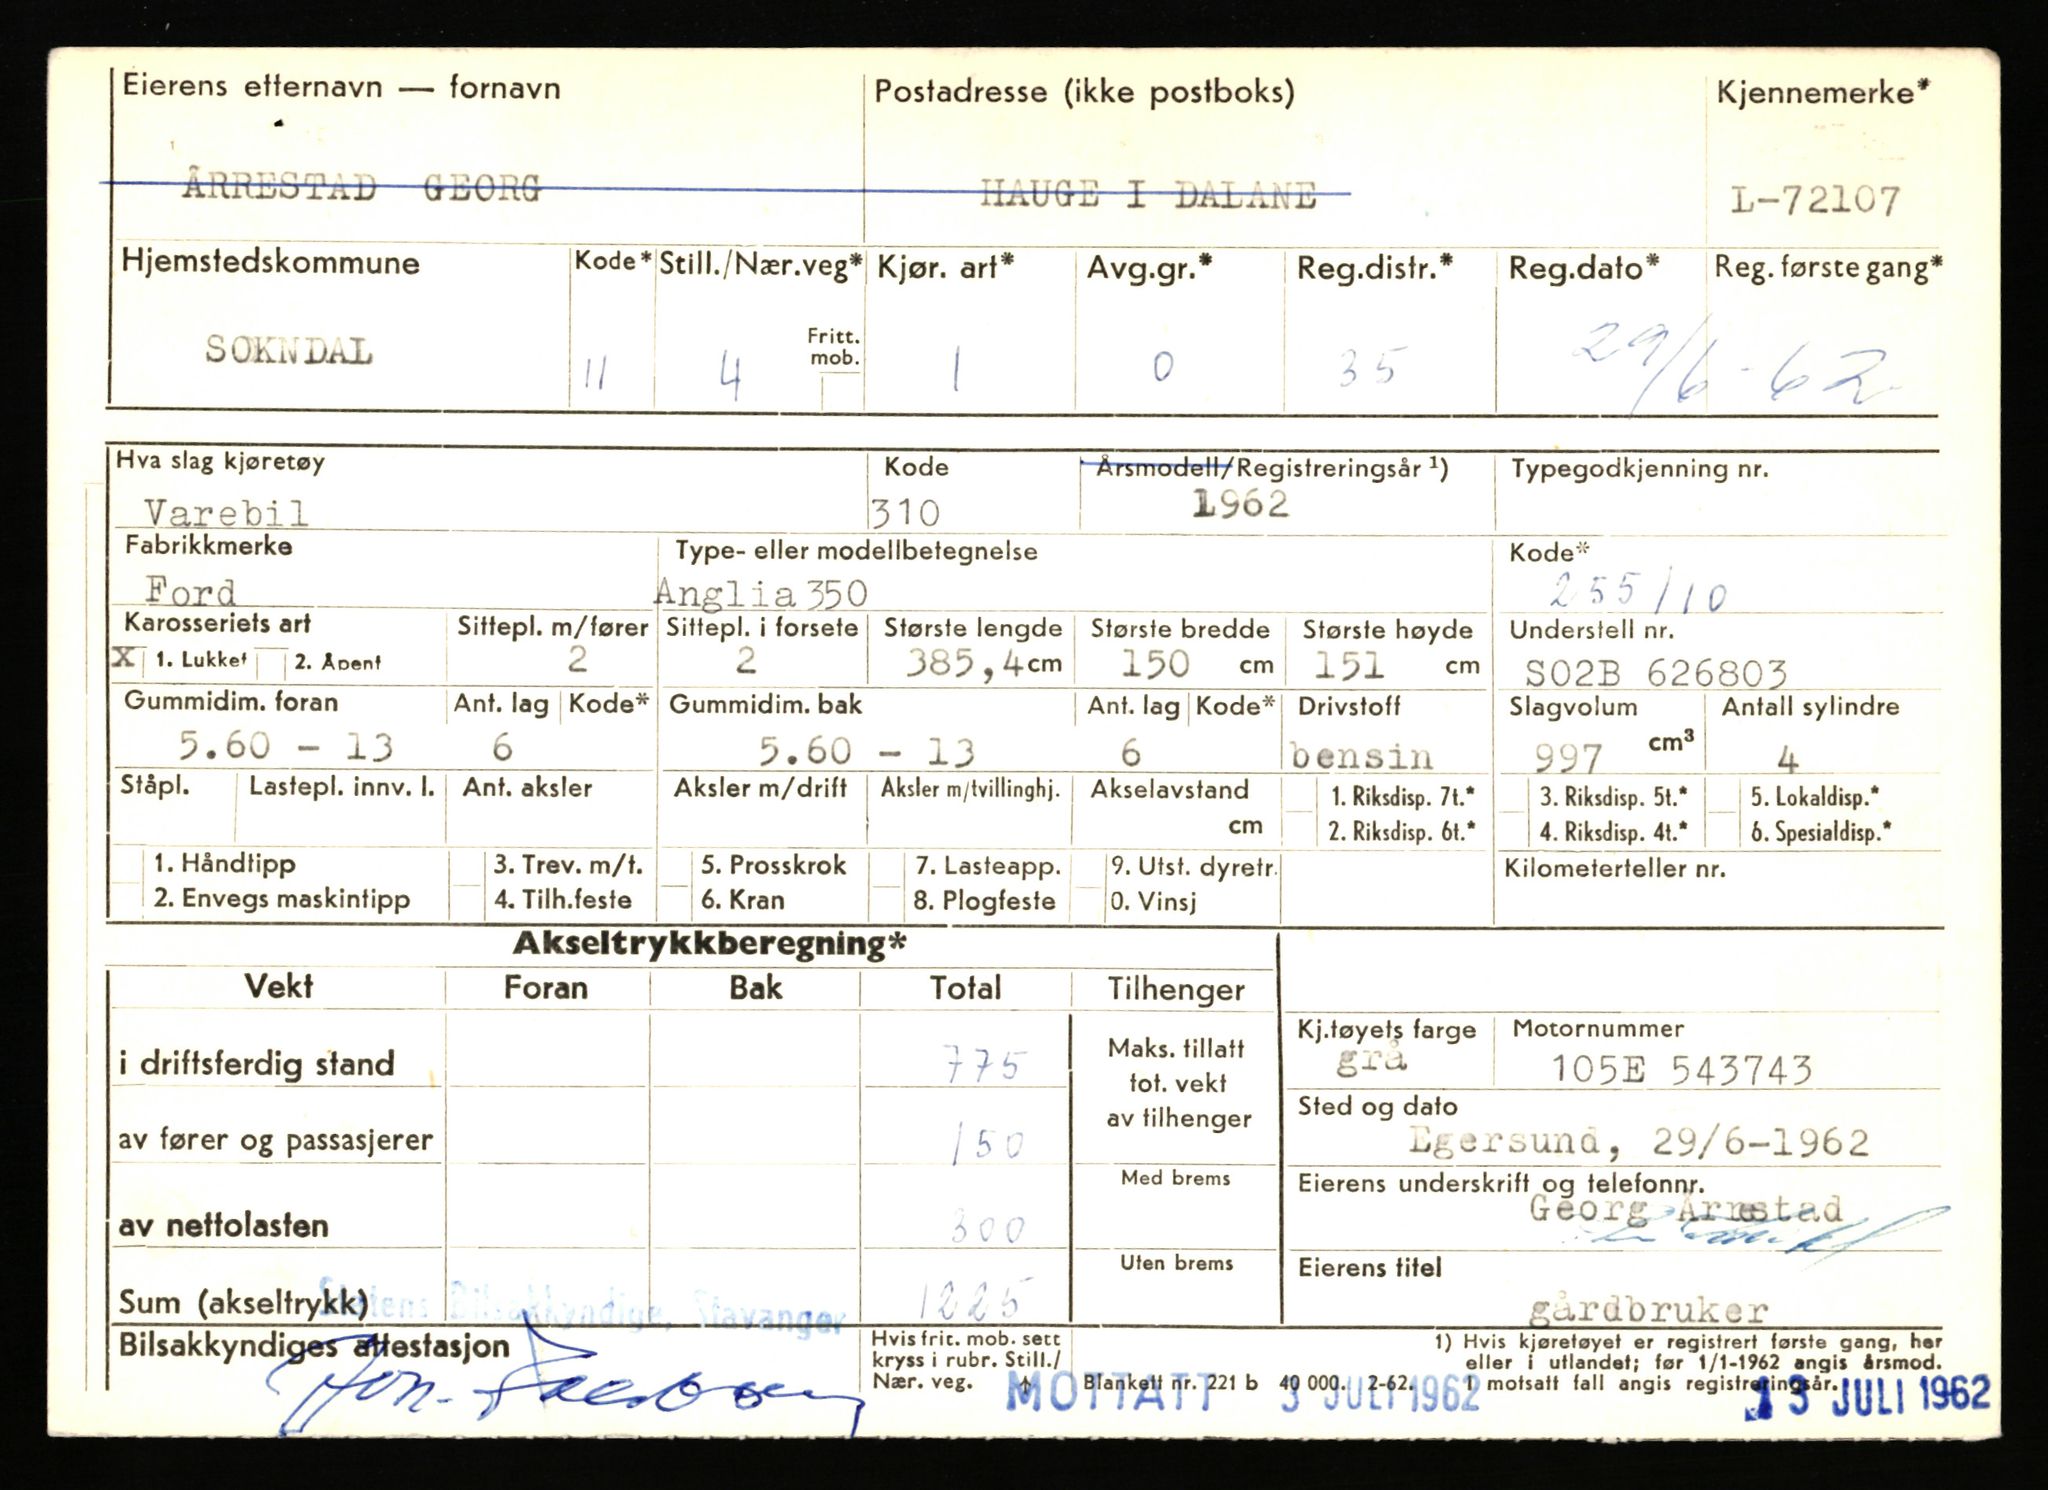 Eierens etternavn — fornavn Postadresse (ikke postboks) Kjennemerke*
ÅRRESTAD GEORG HAUGE I DALANE L-72107
Hjemstedskommune Kode* Still./Nær.veg* Kjør. art* Avg.gr.* Reg.distr.* Reg.dato* Reg. første gang*
SOKNDAL 11 4 Fritt. mob. 1 0 35 29/6-62
Hva slag kjøretøy Kode Årsmodell/Registreringsår ¹) Typegodkjenning nr.
Varebil 310 1962
Fabrikkmerke Type- eller modellbetegnelse Kode*
Ford Anglia 350 255/10
Karosseriets art Sittepl. m/fører Sittepl. i forsete Største lengde Største bredde Største høyde Understell nr.
X 1. Lukket 2. Åpent 2 2 385,4 cm 150 cm 151 cm S02B 626803
Gummidim. foran Ant. lag Kode* Gummidim. bak Ant. lag Kode* Drivstoff Slagvolum Antall sylindre
5.60 - 13 6 5.60 - 13 6 bensin 997 cm³ 4
Ståpl. Lastepl. innv. l. Ant. aksler Aksler m/drift Aksler m/tvillinghj. Akselavstand 1. Riksdisp. 7t.* 3. Riksdisp. 5t.* 5. Lokaldisp.*
cm 2. Riksdisp. 6t.* 4. Riksdisp. 4t.* 6. Spesialdisp.*
1. Håndtipp 3. Trev. m/t. 5. Prosskrok 7. Lasteapp. 9. Utst. dyretr. Kilometerteller nr.
2. Envegs maskintipp 4. Tilh.feste 6. Kran 8. Plogfeste 0. Vinsj
Akseltrykkberegning*
Vekt Foran Bak Total Tilhenger
Kj.tøyets farge Motornummer
i driftsferdig stand 775 Maks. tillatt grå 105E 543743
tot. vekt
av tilhenger Sted og dato
av fører og passasjerer 150 Egersund, 29/6-1962
Med brems Eierens underskrift og telefonnr.
av nettolasten 300 Georg Årrestad
Uten brems Eierens titel
Sum (akseltrykk) 1225 gårdbruker
Statens Bilsakkyndige, Stavanger
Bilsakkyndiges attestasjon Hvis frit. mob. sett 1) Hvis kjøretøyet er registrert første gang, her
kryss i rubr. Still./ eller i utlandet; før 1/1-1962 angis årsmod.
Nær. veg. Blankett nr. 221 b 40 000. 2-62. I motsatt fall angis registreringsår.
MOTTATT 3 JULI 1962 13 JULI 1962